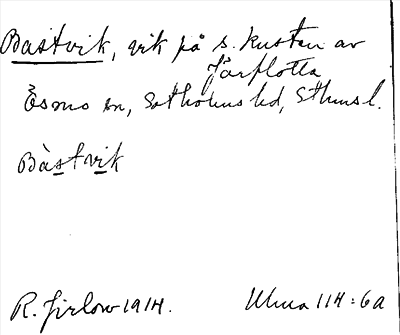 Bastvik, vik på s. kusten av
Järflotta
Ösmo sn, Sotholms hd, Sthms l.
Bàstvik
R. Jirlow 1914.
Ulma 114:6a